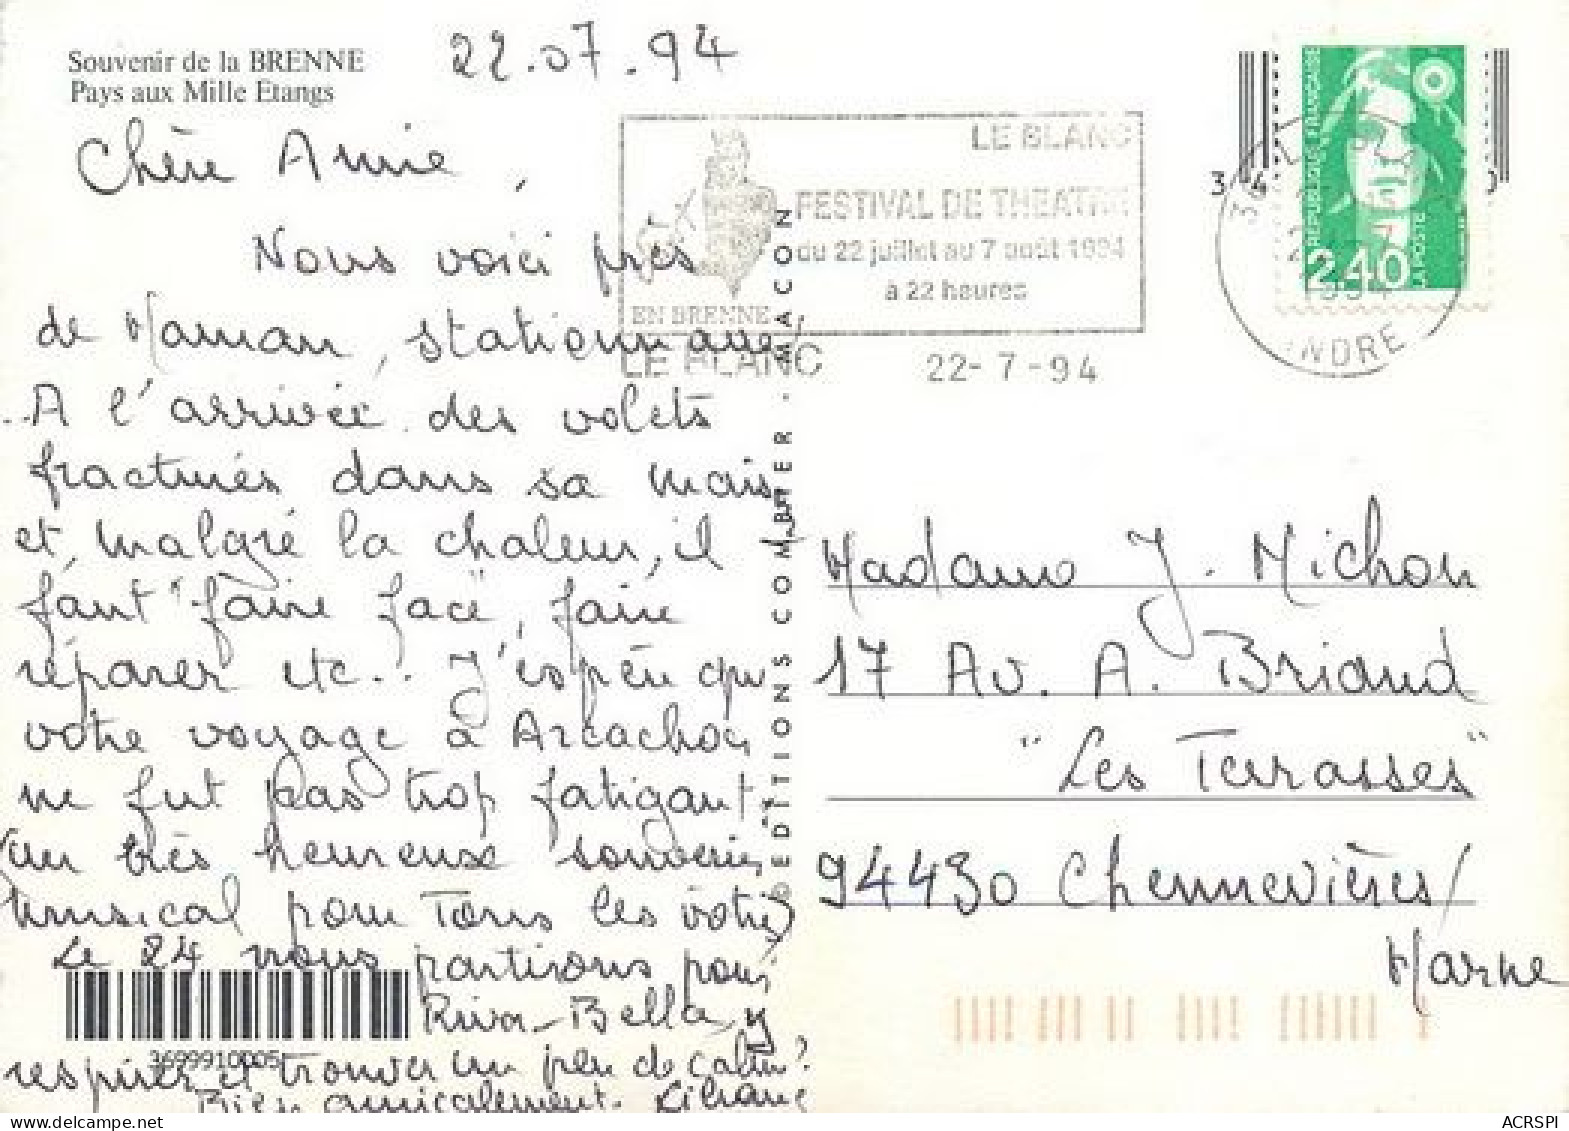 Souvenir de la BRENNE
Pays aux Mille Etangs
22.07.94
Chère Annie,
Nous voici près
de Maman, stationnaire
A l'arrivée des volets
fracturés dans sa mais
et, malgré la chaleur, il
faut "faire face", faire
réparer etc.. J'espère que
votre voyage à Arcachon
ne fut pas trop fatigant
un très heureuse souvenir
musical pour Tous les vôtres
Le 24 nous partirons pour
Riva-Bella y
respirer et trouver un peu de calme?
Bien amicalement. Liliane
3699910005
EDITIONS COMBIER - MACON
LE BLANC
FESTIVAL DE THEATRE
du 22 juillet au 7 août 1994
à 22 heures
EN BRENNE
LE BLANC
22-7-94
REPUBLIQUE FRANÇAISE
2,40
LA POSTE
1994
INDRE
Madame J. Michon
17 Av. A. Briand
"Les Terrasses"
94430 Chennevières/
Marne
ACRSPI